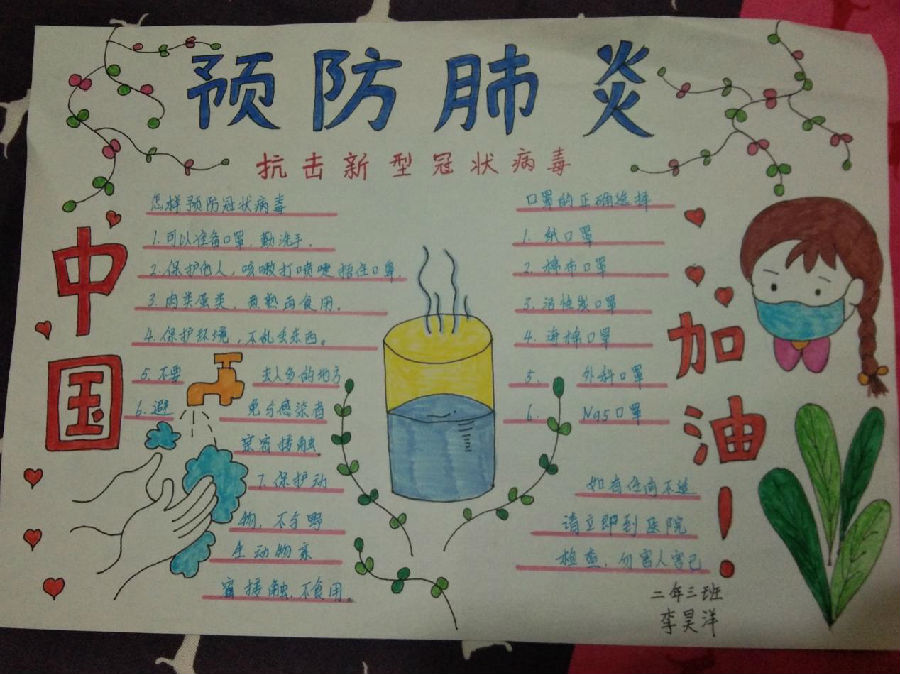 预防肺炎
抗击新型冠状病毒
中国
怎样预防冠状病毒
1.可以准备口罩,勤洗手.
2.保护他人,咳嗽打喷嚏捂住口鼻.
3.肉类蛋类,煮熟再食用.
4.保护环境,不乱丢东西。
5.不要去人多的地方
6.避免与感染者
亲密接触
7.保护动
物,不与野
生动物亲
密接触,不食用.
口罩的正确选择
1.纸口罩
2.棉布口罩
3.活性炭口罩
4.海棉口罩
5.外科口罩
6.N95口罩
如有任何不适
请立即到医院
检查,勿害人害己
加油!
二年三班
李昊洋